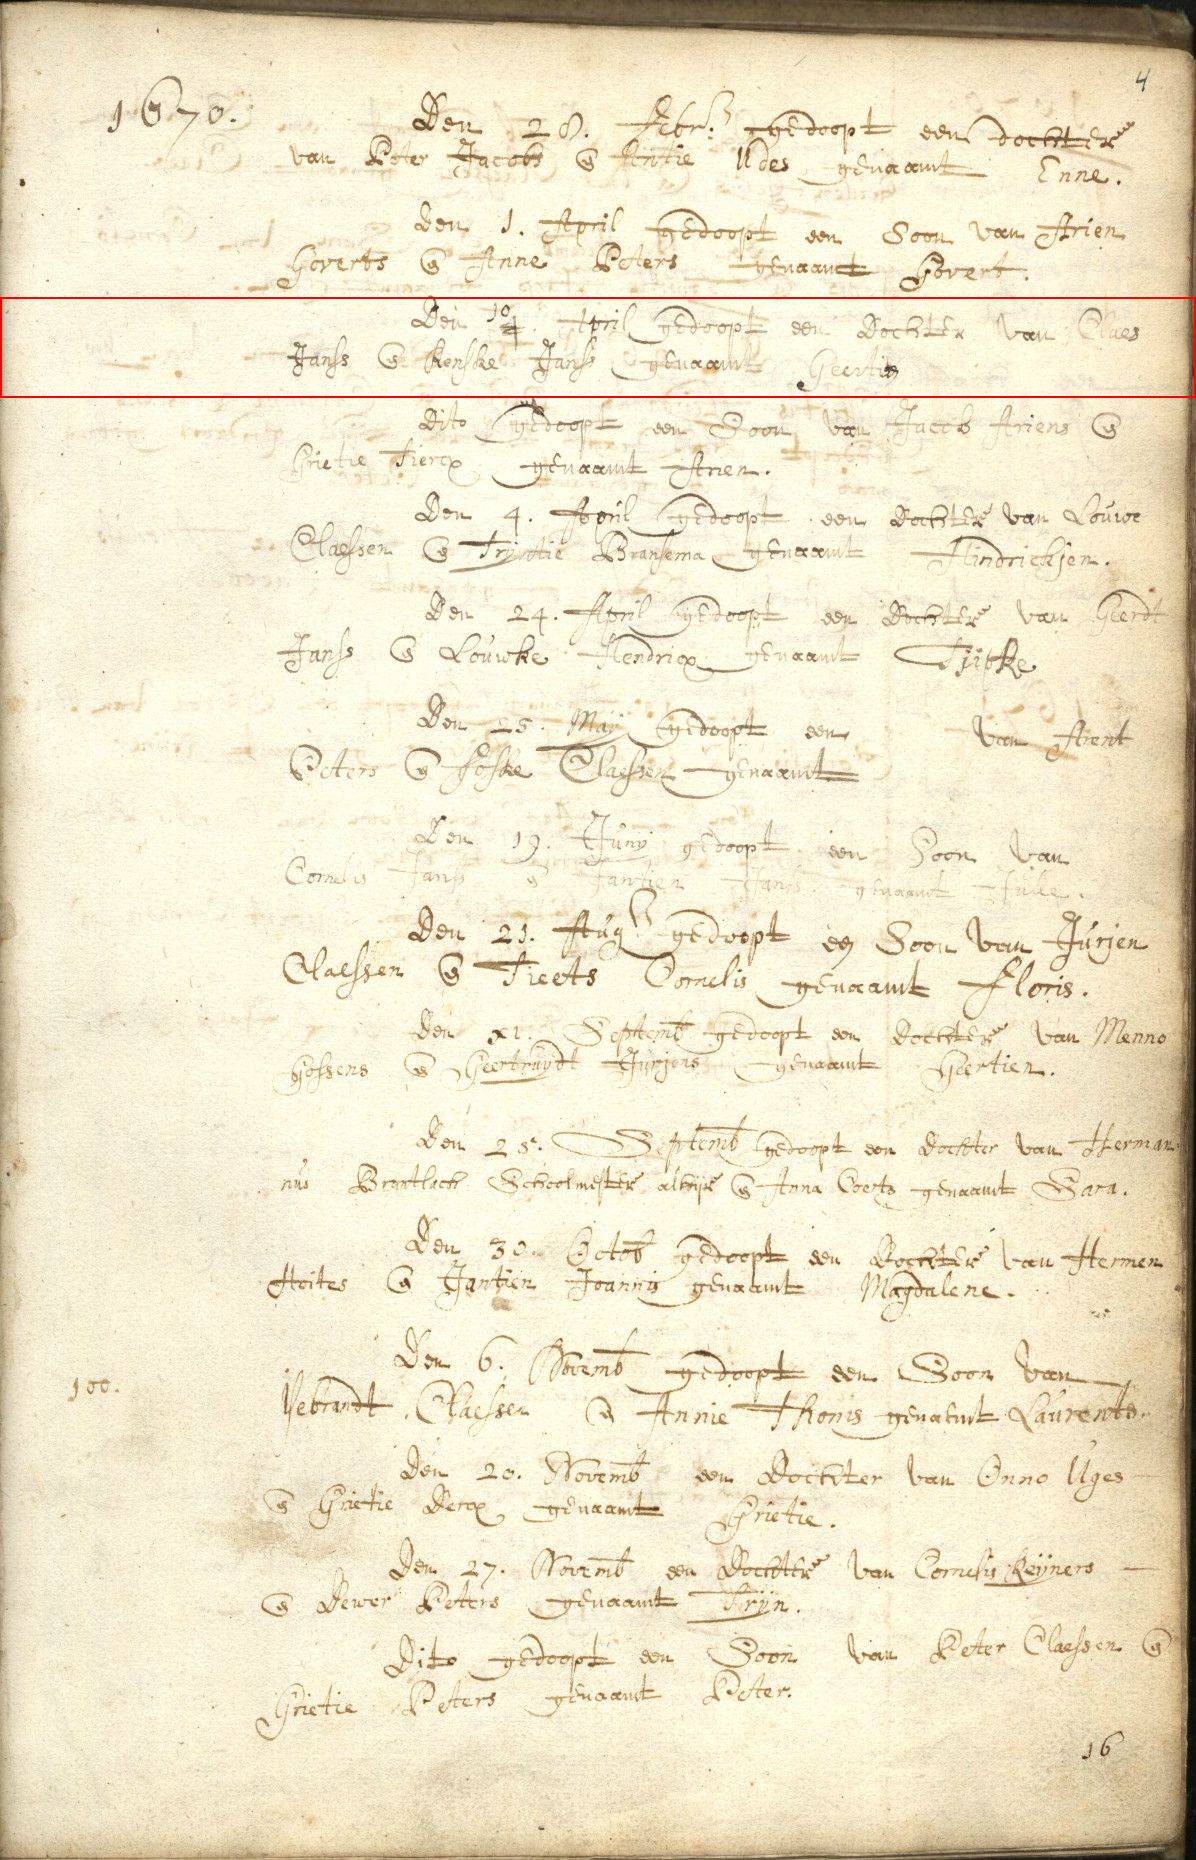 4
1670.
Den 28. Febr: gedoopt een dochter
van Peter Jacobs & Antie Udes genaamt Enne.
Den 1. April gedoopt een Soon van Arien
Goverts & Anne Peters genaamt Govert.
Den 10/4. April gedoopt een Dochter van Claes
Janss & Renske Janss genaamt Geertie
Dito gedoopt een Soon van Jacob Ariens &
Grietie Fierex genaamt Arien.
Den 4. April gedoopt een Dochter van Louwe
Claessen & Tryntie Bransema genaamt Hindrickjen.
Den 24. April gedoopt een Dochter van Geerdt
Janss & Louwke Hendricx genaamt Tjipke
Den 25. May gedoopt een van Arent
Peters & Foske Claessen genaamt
Den 19. Juny gedoopt een Soon van
Cornelis Janss & Jantien Janss genaamt Julle.
Den 21. Aug gedoopt een Soon van Jurjen
Claessen & Tieets Cornelis genaamt Floris.
Den XI. Septemb gedoopt een Dochter van Menno
Gossens & Geertruydt Jurjens genaamt Geertien.
Den 25. Septemb gedoopt een Dochter van Herman
nus Brantlach Schoolmester alhijr & Anna Coerts genaamt Sara.
Den 30. Octob gedoopt een Dochter van Hermen
Hoites & Jantien Joannis genaamt Magdalene.
Den 6. Novemb gedoopt een Soon van
100. Ilebrandt Claessen & Annie Thonis genaemt Laurents.
Den 20. Novemb een Dochter van Onno Uges
& Grietie Dercx genaamt Grietie.
Den 27. Novemb een Dochter van Cornelis Reijners
& Dewer Peters genaamt Trijn.
Dito gedoopt een Soon van Peter Claessen &
Grietie Peters genaamt Peter.
16